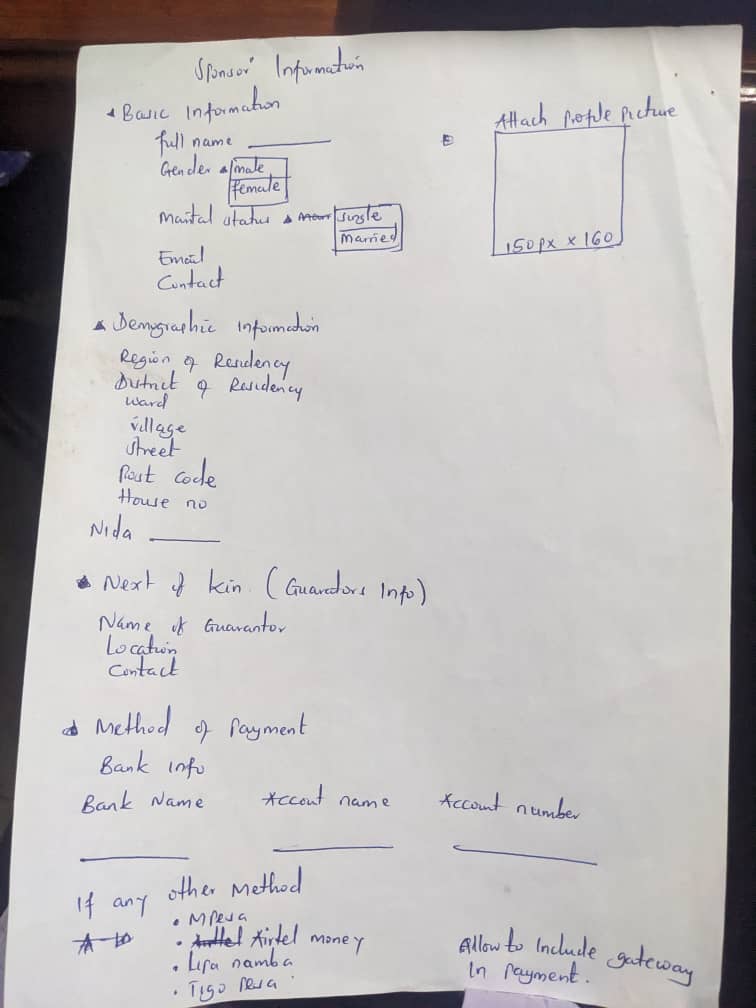 Sponsor Information
Basic Information
full name
Attach profile picture
Gender male
female
Marital status single
Married
150px x 160
Email
Contact
Demographic information
Region of Residency
District of Residency
ward
village
street
Post code
House no
Nida
Next of kin. (Guarators Info)
Name of Guarantor
Location
Contact
Method of Payment
Bank info
Bank Name Accout name Account number
If any other Method
• Mpesa
• Airtel money
• Lipa namba
• Tigo Pesa
Allow to Include gateway
In payment.